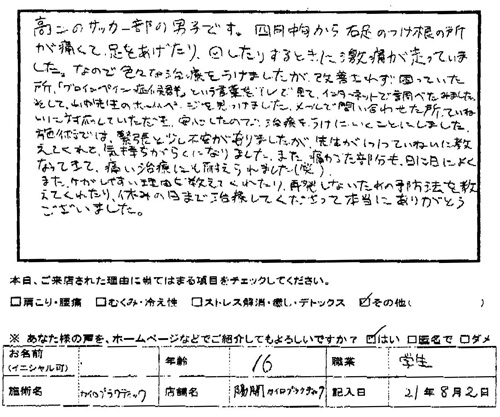 高二のサッカー部の男子です。四月中旬から右足のつけ根の所
が痛くて、足をあげたり、回したりするときに激痛が走っていま
した。なので色々な治療をうけましたが、改善されず困っていた
所、「グロインペイン症候群」という言葉をTVで見て、インターネットで調べてみました。
そして、山が先生のホームページを見つけました。メールで問い合わせた所、ていね
いに対応していただき、安心したので治療をうけにいくことにしました。
では、緊張と少し不安がありましたが、先生がていねいに教
えてくれて、気持ちがらくになりました。また、痛かった部分も、日に日によく
なってきて、痛い治療にも耐えられました(笑)
また、ケガしやすい理由を教えてくれたり、再発しないための予防法を教
えてくれたり、休みの日まで治療してくださって本当にありがとう
ございました。
本日、ご来店された理由に当てはまる項目をチェックしてください。
□肩こり・腰痛 □むくみ・冷え性 □ストレス解消・癒し・デトックス ☑その他( )
※ あなた様の声を、ホームページなどでご紹介してもよろしいですか? ☑はい □匿名で □ダメ
お名前 (イニシャル可) 年齢 16 職業 学生
施術名 カイロプラクティック 店舗名 陽開カイロプラクティック 記入日 21年8月2日